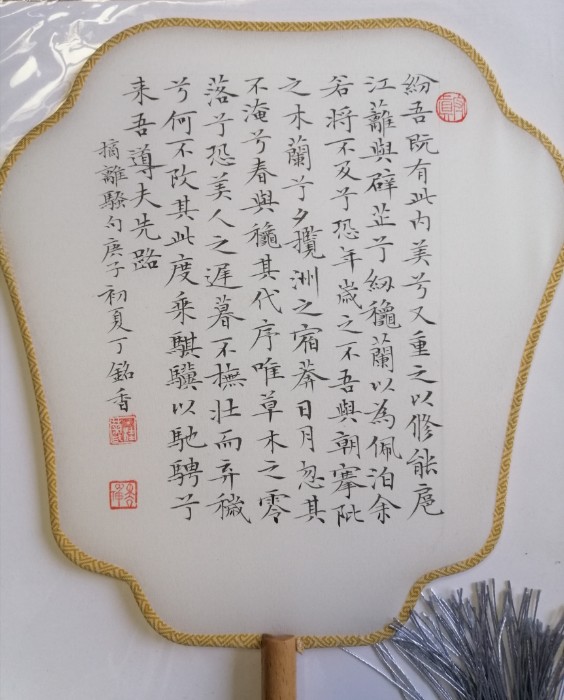 紛吾既有此內美兮又重之以修能扈
江蘺與辟芷兮紉龝蘭以為佩汩余
若將不及兮恐年歲之不吾與朝搴阰
之木蘭兮夕攬洲之宿莽日月忽其
不淹兮春與龝其代序唯草木之零
落兮恐美人之遲暮不撫壯而弃穢
兮何不改其此度乘騏驥以馳騁兮
来吾導夫先路
摘離騷句庚子初夏丁銘香